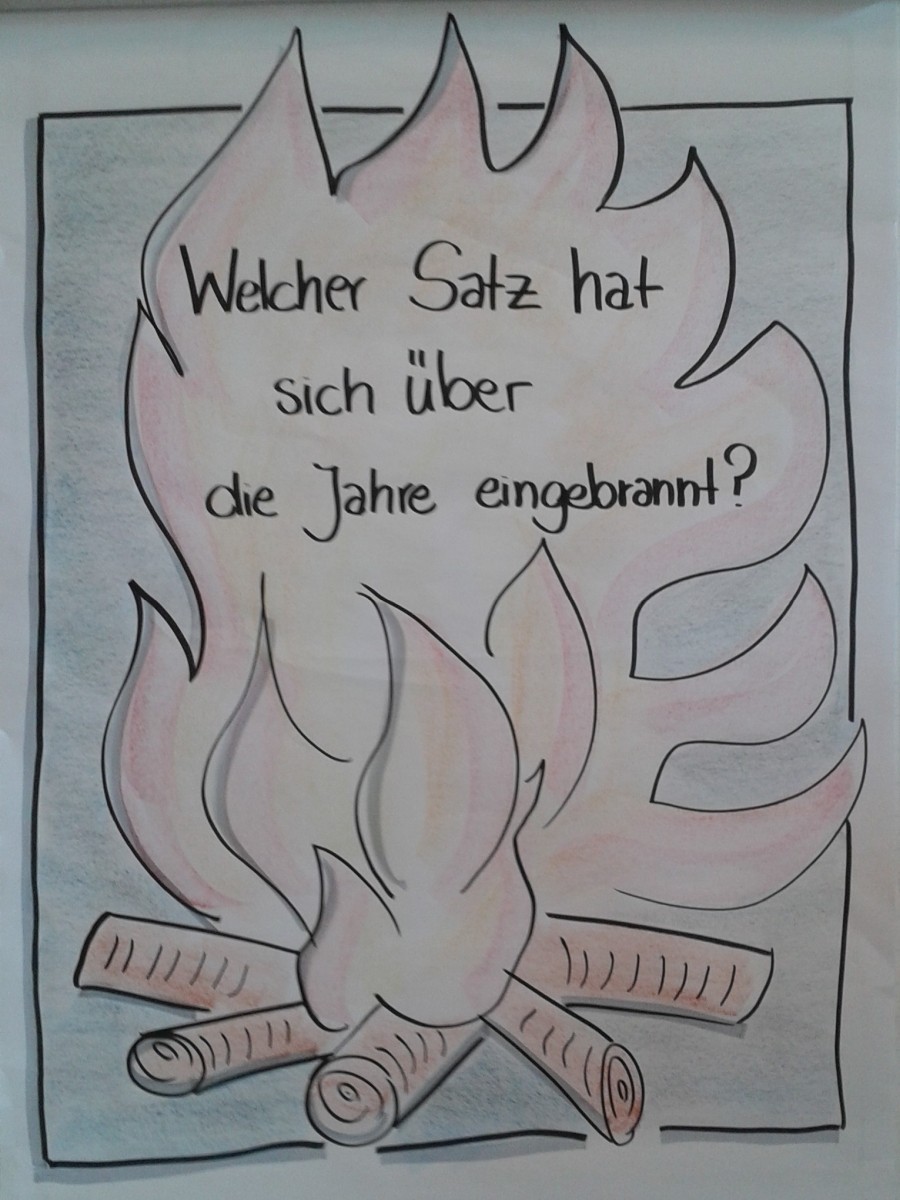 Welcher Satz hat
sich über
die Jahre eingebrannt?